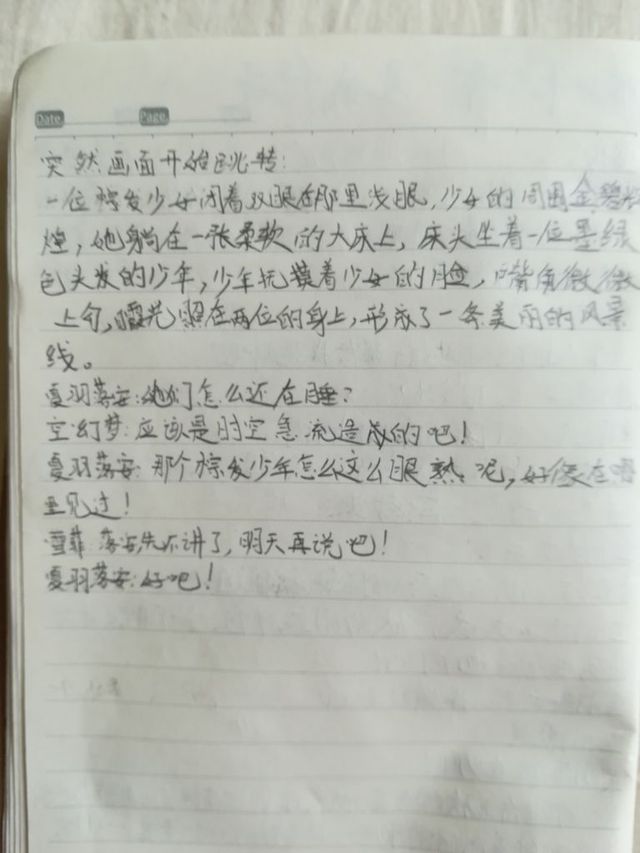 Date
Page
突然画面开始跳转:
一位棕发少女闭着双眼在那里浅眠,少女的周围金碧
煌,她躺在一张柔软的大床上,床头坐着一位墨绿
色头发的少年,少年抚摸着少女的脸,嘴角微微
上勾,曙光照在两位的身上,形成了一条美丽的风景
线。
夏羽落安:她们怎么还在睡?
空幻梦:应该是时空急流造成的吧!
夏羽落安:那个棕发少年怎么这么眼熟呢,好像在
里见过!
雪菲 落安,先不讲了,明天再说吧!
夏羽落安:好吧!